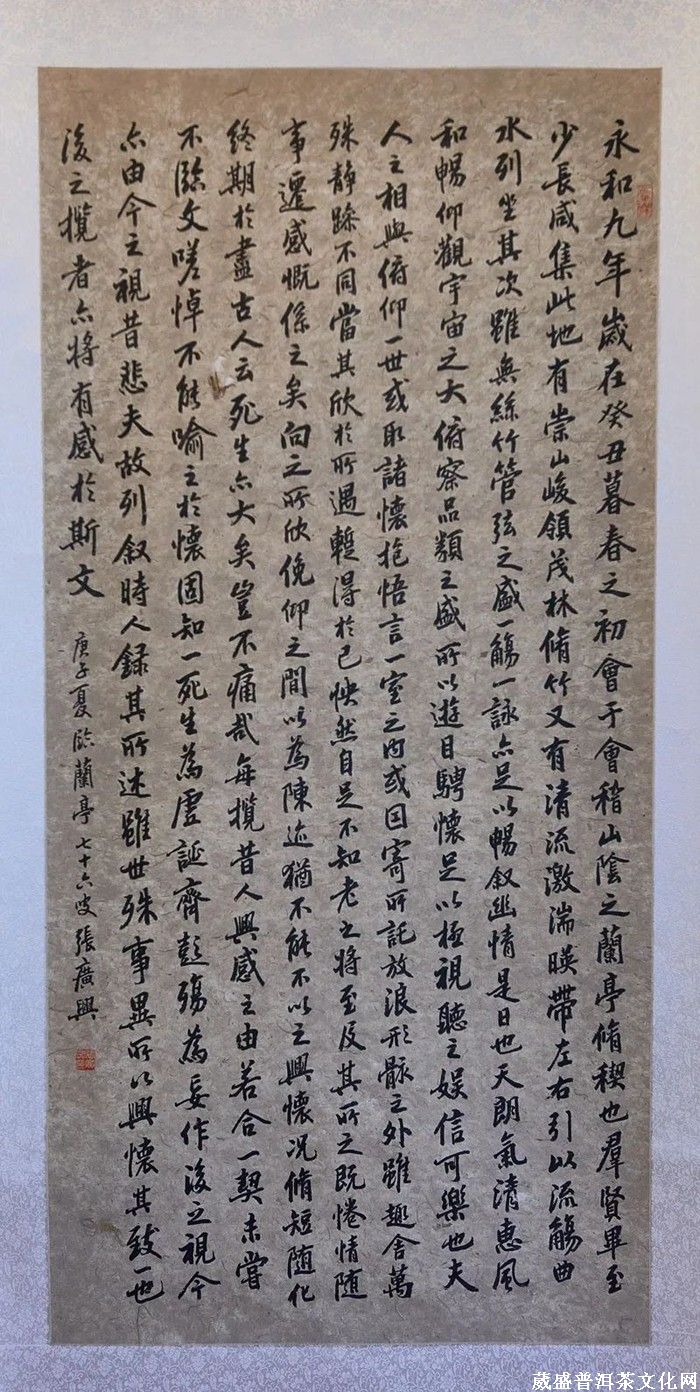 永和九年歲在癸丑暮春之初會于會稽山陰之蘭亭脩稧也羣賢畢至
少長咸集此地有崇山峻領茂林脩竹又有清流激湍暎帶左右引以流觴曲
水列坐其次雖無絲竹管弦之盛一觴一詠亦足以暢叙幽情是日也天朗氣清惠風
和暢仰觀宇宙之大俯察品類之盛所以遊目騁懷足以極視聽之娛信可樂也夫
人之相與俯仰一世或取諸懷抱悟言一室之內或因寄所託放浪形骸之外雖趣舍萬
殊靜躁不同當其欣於所遇蹔得於己怏然自足不知老之將至及其所之既惓情隨
事遷感慨係之矣向之所欣俛仰之間以為陳迹猶不能不以之興懷况脩短隨化
終期於盡古人云死生亦大矣豈不痛哉每攬昔人興感之由若合一契未嘗
不臨文嗟悼不能喻之於懷固知一死生為虛誕齊彭殤為妄作後之視今
亦由今之視昔悲夫故列叙時人錄其所述雖世殊事異所以興懷其致一也
後之攬者亦將有感於斯文
庚子夏臨蘭亭七十六叟張廣興
葳盛普洱茶文化网